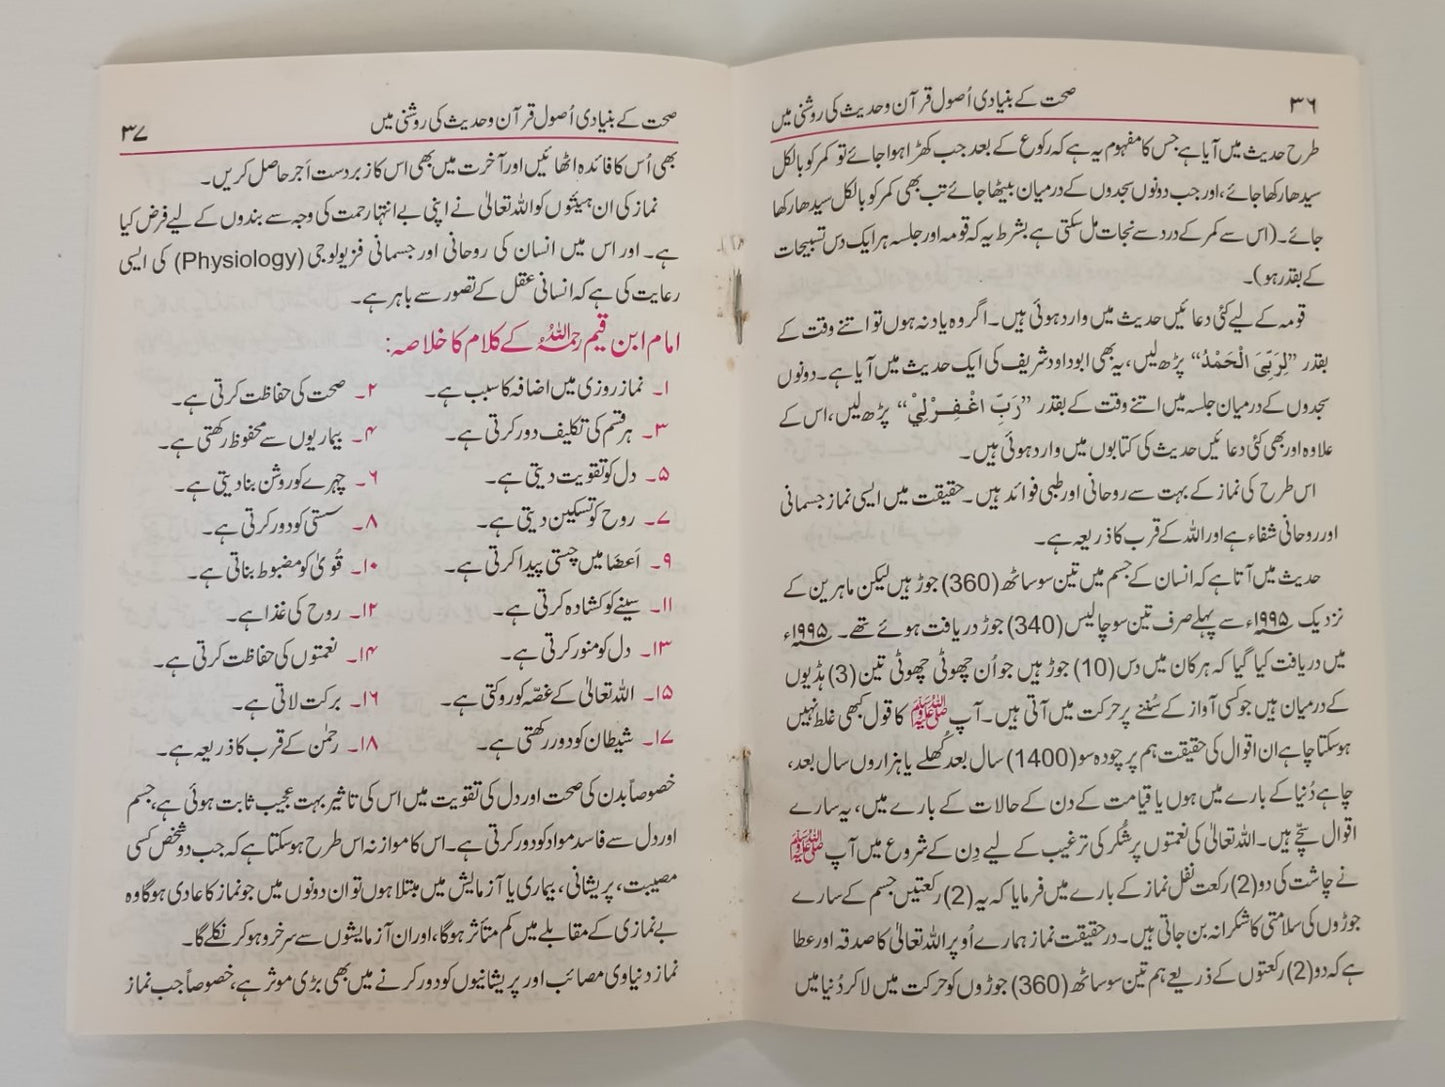 ۳۶ صحت کے بنیادی اُصول قرآن و حدیث کی روشنی میں
طرح حدیث میں آیا ہے جس کا مفہوم یہ ہے کہ رکوع کے بعد جب کھڑا ہوا جائے تو کمر کو بالکل
سیدھا رکھا جائے، اور جب دونوں سجدوں کے درمیان بیٹھا جائے تب بھی کمر کو بالکل سیدھا رکھا
جائے۔ (اس سے کمر کے درد سے نجات مل سکتی ہے بشرط یہ کہ قومہ اور جلسہ ہر ایک دس تسبیحات
کے بقدر ہو)۔
قومہ کے لیے کئی دعائیں حدیث میں وارد ہوئی ہیں۔ اگر وہ یاد نہ ہوں تو اتنے وقت کے
بقدر ”لِرَبِّیَ الْحَمْدُ“ پڑھ لیں، یہ بھی ابوداود شریف کی ایک حدیث میں آیا ہے۔ دونوں
سجدوں کے درمیان جلسہ میں اتنے وقت کے بقدر ”رَبِّ اغْفِرْلِيْ“ پڑھ لیں، اس کے
علاوہ اور بھی کئی دعائیں حدیث کی کتابوں میں وارد ہوئی ہیں۔
اس طرح کی نماز کے بہت سے روحانی اور طبی فوائد ہیں۔ حقیقت میں ایسی نماز جسمانی
اور روحانی شفاء ہے اور اللہ کے قرب کا ذریعہ ہے۔
حدیث میں آتا ہے کہ انسان کے جسم میں تین سو ساٹھ (360) جوڑ ہیں لیکن ماہرین کے
نزدیک ۱۹۹۵ء سے پہلے صرف تین سو چالیس (340) جوڑ دریافت ہوئے تھے۔ ۱۹۹۵ء
میں دریافت کیا گیا کہ ہر کان میں دس (10) جوڑ ہیں جو اُن چھوٹی چھوٹی تین (3) ہڈیوں
کے درمیان ہیں جو کسی آواز کے سُننے پر حرکت میں آتی ہیں۔ آپ ﷺ کا قول کبھی غلط نہیں
ہوسکتا چاہے ان اقوال کی حقیقت ہم پر چودہ سو (1400) سال بعد کُھلے یا ہزاروں سال بعد،
چاہے دُنیا کے بارے میں ہوں یا قیامت کے دن کے حالات کے بارے میں، یہ سارے
اقوال سچّے ہیں۔ اللہ تعالیٰ کی نعمتوں پر شُکر کی ترغیب کے لیے دِن کے شروع میں آپ ﷺ
نے چاشت کی دو (2) رکعت نفل نماز کے بارے میں فرمایا کہ یہ (2) رکعتیں جسم کے سارے
جوڑوں کی سلامتی کا شکرانہ بن جاتی ہیں۔ درحقیقت نماز ہمارے اُوپر اللہ تعالیٰ کا صدقہ اور عطا
ہے کہ دو (2) رکعتوں کے ذریعے ہم تین سو ساٹھ (360) جوڑوں کو حرکت میں لاکر دُنیا میں
صحت کے بنیادی اُصول قرآن و حدیث کی روشنی میں ۳۷
بھی اُس کا فائدہ اٹھائیں اور آخرت میں بھی اس کا زبردست اَجر حاصل کریں۔
نماز کی ان ہیئتوں کو اللہ تعالیٰ نے اپنی بے انتہا رحمت کی وجہ سے بندوں کے لیے فرض کیا
ہے۔ اور اس میں انسان کی روحانی اور جسمانی فزیولوجی (Physiology) کی ایسی
رعایت کی ہے کہ انسانی عقل کے تصور سے باہر ہے۔
امام ابن قیم رحمہ اللہ کے کلام کا خلاصہ:
۱۔ نماز روزی میں اضافہ کا سبب ہے۔ ۲۔ صحت کی حفاظت کرتی ہے۔
۳۔ ہر قسم کی تکلیف دور کرتی ہے۔ ۴۔ بیماریوں سے محفوظ رکھتی ہے۔
۵۔ دل کو تقویت دیتی ہے۔ ۶۔ چہرے کو روشن بنا دیتی ہے۔
۷۔ روح کو تسکین دیتی ہے۔ ۸۔ سستی کو دور کرتی ہے۔
۹۔ اَعضَا میں چستی پیدا کرتی ہے۔ ۱۰۔ قُویٰ کو مضبوط بناتی ہے۔
۱۱۔ سینے کو کشادہ کرتی ہے۔ ۱۲۔ روح کی غذا ہے۔
۱۳۔ دل کو منور کرتی ہے۔ ۱۴۔ نعمتوں کی حفاظت کرتی ہے۔
۱۵۔ اللہ تعالیٰ کے غصّہ کو روکتی ہے۔ ۱۶۔ برکت لاتی ہے۔
۱۷۔ شیطان کو دور رکھتی ہے۔ ۱۸۔ رحمٰن کے قرب کا ذریعہ ہے۔
خصوصاً بدن کی صحت اور دل کی تقویت میں اس کی تاثیر بہت عجیب ثابت ہوئی ہے، جسم
اور دل سے فاسد مواد کو دور کرتی ہے۔ اس کا موازنہ اس طرح ہوسکتا ہے کہ جب دو شخص کسی
مصیبت، پریشانی، بیماری یا آزمایش میں مبتلا ہوں تو ان دونوں میں جو نماز کا عادی ہوگا وہ
بے نمازی کے مقابلے میں کم متأثر ہوگا، اور ان آزمایشوں سے سرخرو ہوکر نکلے گا۔
نماز دنیاوی مصائب اور پریشانیوں کو دور کرنے میں بھی بڑی موثر ہے، خصوصاً جب نماز